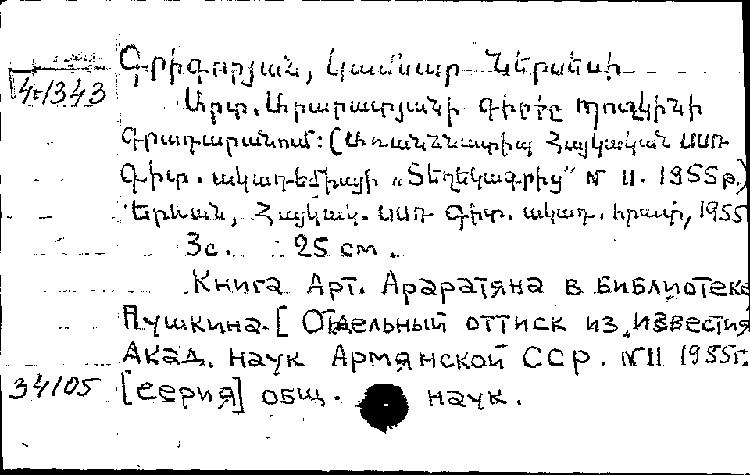 Գրիգորյան, Կամսար Ներսեսի
4է1343
Արտ. Արարատյանի գիրքը Պուշկինի
Գրադարանում: (Առանձնատիպ Հայկական ՍՍՌ
Գիտ. ակադեմիայի „Տեղեկագրից" N 11. 1955թ.)
Երևան, Հայկակ. ՍՍՌ Գիտ. ակադ. հրատ, 1955
3с. 25 см.
Книга Арт. Араратяна в библиотеке
Пушкина. [Отдельный оттиск из „Известия
Акад. наук Армянской ССР. N 11 1955г.
34105 [серия] общ. наук.